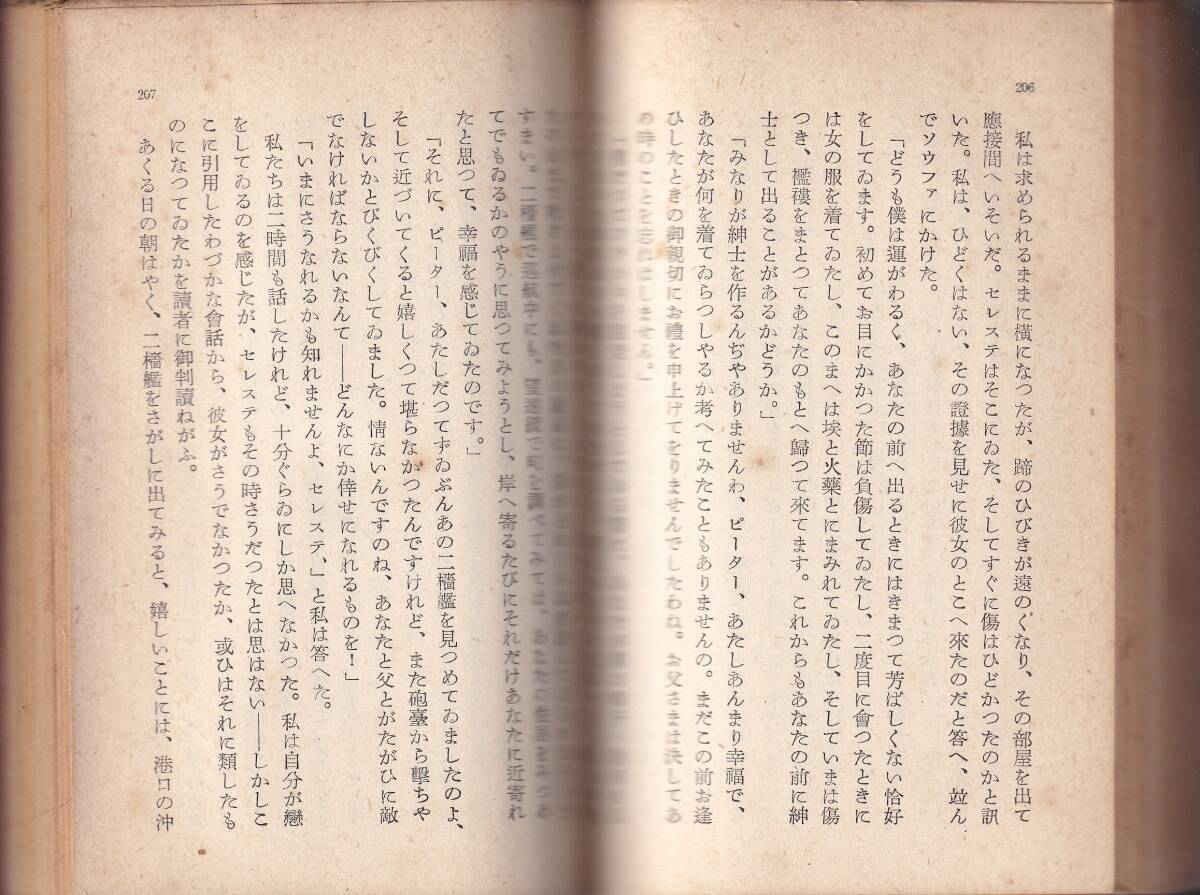 206
私は求められるままに横になつたが、蹄のひびきが遠のくなり、その部屋を出て
應接間へいそいだ。セレステはそこにゐた、そしてすぐに傷はひどかつたのかと訊
いた。私は、ひどくはない、その證據を見せに彼女のとこへ來たのだと答へ、竝ん
でソウファにかけた。
「どうも僕は運がわるく、あなたの前へ出るときにはきまつて芳ばしくない恰好
をしてゐます。初めてお目にかかつた節は負傷してゐたし、二度目に會つたときに
は女の服を着てゐたし、このまへは埃と火藥とにまみれてゐたし、そしていまは傷
つき、襤褸をまとつてあなたのもとへ歸つて來てます。これからもあなたの前に紳
士として出ることがあるかどうか。」
「みなりが紳士を作るんぢやありませんわ、ピーター、あたしあんまり幸福で、
あなたが何を着てゐらつしやるか考へてみたこともありませんの。まだこの前お逢
ひしたときの御親切にお禮を申上げてをりませんでしたわね。お父さまは決してあ
の時のことを忘れはしません。」
207
すまい。二檣艦で巡航中にも、望遠鏡で町を調べてみては、あなたの住居をみつあ
てでもゐるかのやうに思つてみようとし、岸へ寄るたびにそれだけあなたに近寄れ
たと思つて、幸福を感じてゐたのです。」
「それに、ピーター、あたしだつてずゐぶんあの二檣艦を見つめてゐましたのよ、
そして近づいてくると嬉しくつて堪らなかつたんですけれど、また砲臺から擊ちや
しないかとびくびくしてゐました。情ないんですのね、あなたと父とがたがひに敵
でなければならないなんて――どんなにか倖せになれるものを！」
「いまにさうなれるかも知れませんよ、セレステ、」と私は答へた。
私たちは二時間も話したけれど、十分ぐらゐにしか思へなかつた。私は自分が戀
をしてゐるのを感じたが、セレステもその時さうだつたとは思はない――しかしこ
こに引用したわづかな會話から、彼女がさうでなかつたか、或ひはそれに類したも
のになつてゐたかを讀者に御判讀ねがふ。
あくる日の朝はやく、二檣艦をさがしに出てみると、嬉しいことには、港口の沖